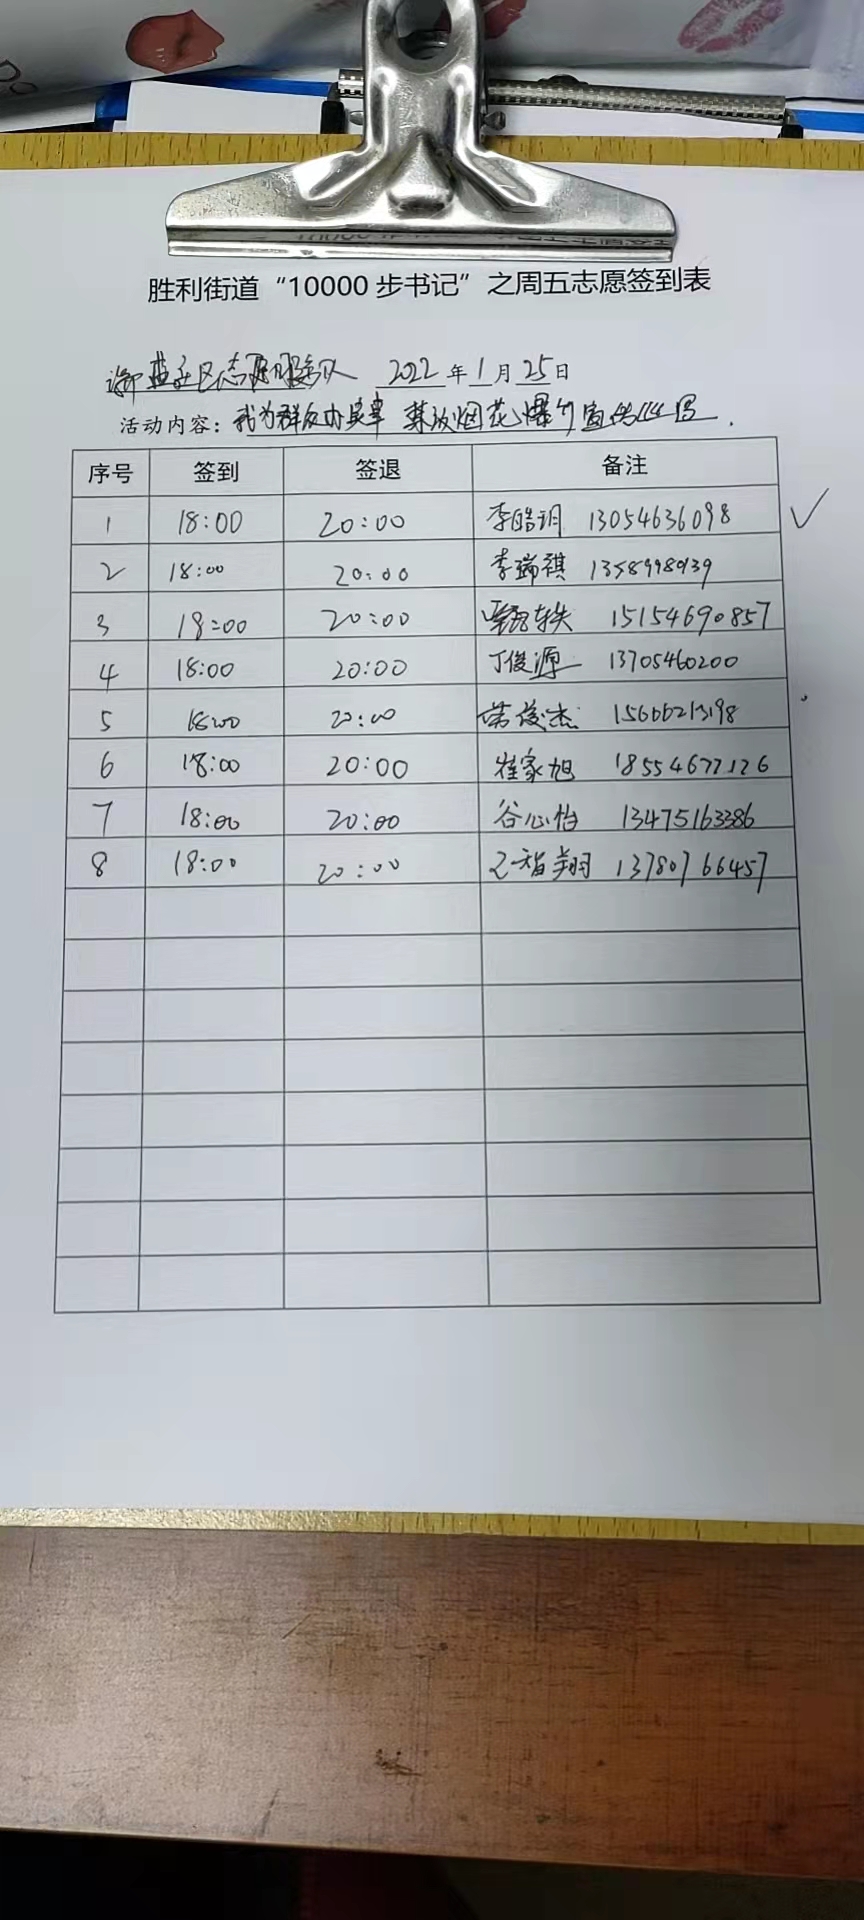 胜利街道“10000步书记”之周五志愿签到表
社区志愿服务队 2022年1月25日
活动内容：我为群众办实事 禁放烟花爆竹宣传
序号 签到 签退 备注
1 18:00 20:00 李皓玥 13054636098
2 18:00 20:00 李瑞祺
3 18:00 20:00 15154690857
4 18:00 20:00 丁俊源 13705460200
5 18:00 20:00 俊杰
6 18:00 20:00 崔家旭 18554677126
7 18:00 20:00 谷心怡 13475163386
8 18:00 20:00 智翔 13780766457